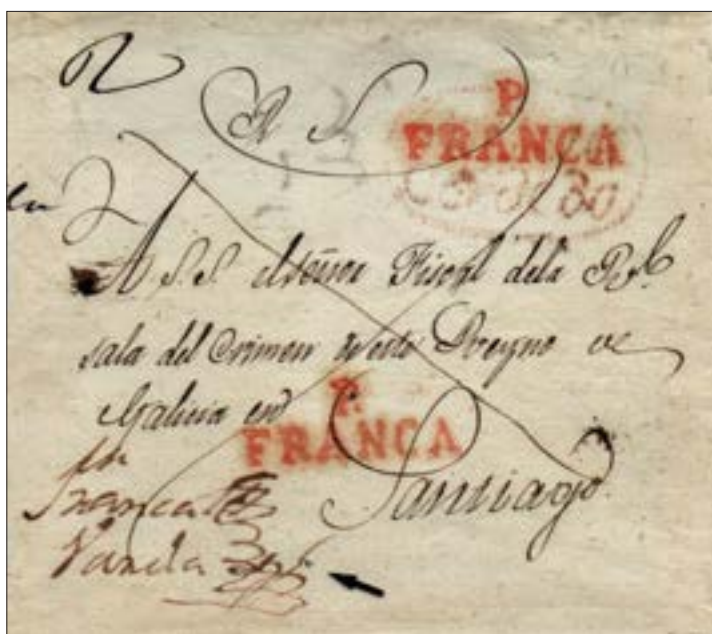 R S.
P.
FRANCA
A S.S. el señor Fiscal dela Rl.
sala del Crimen de este Reyno de
Galicia en
P.
FRANCA
Santiago.
Franca
Varela